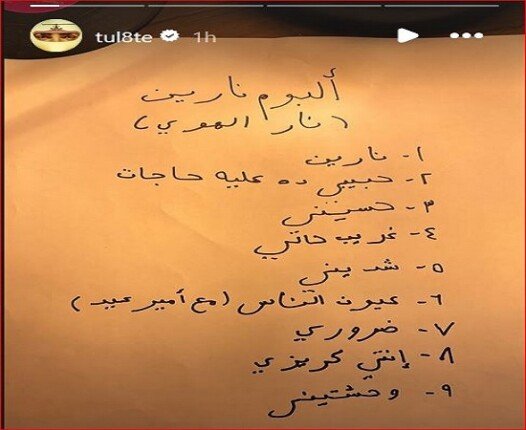 tul8te 1h
ألبوم نارين
(نار الهوي)
١- نارين
٢- حبيبي ده عليه حاجات
٣- حسيني
٤- غريب حالي
٥- شديني
٦- عيون الناس (مع أمير عيد)
٧- ضروري
٨- إنتي كريزي
٩- وحشتيني